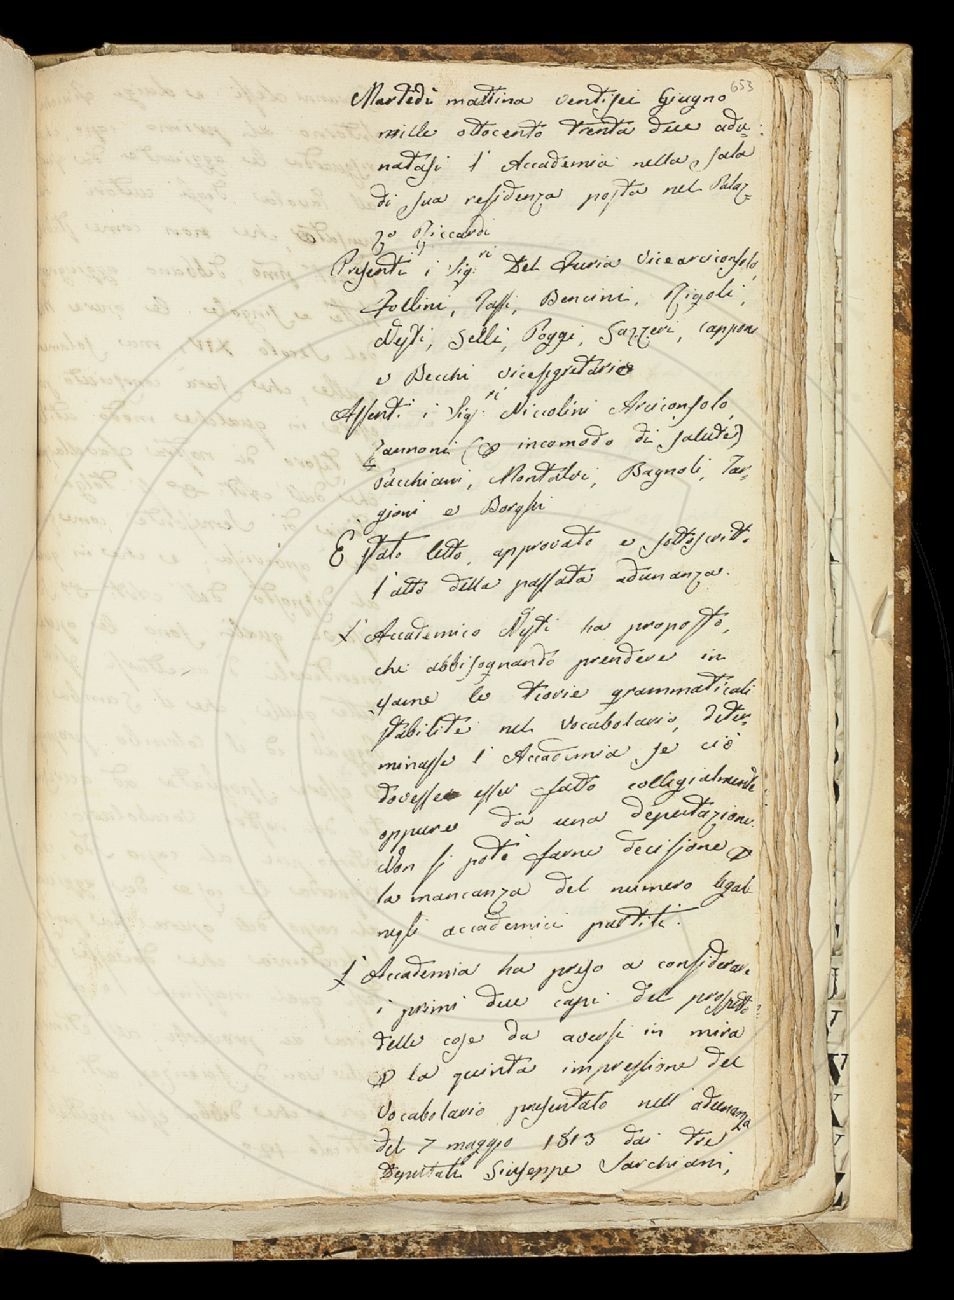 653
Martedì mattina ventisei Giugno
mille ottocento trenta due adu-
natasi l'Accademia nella sala
di sua residenza posta nel Palaz-
zo Riccardi
Presenti i Sig.ri Del Furia Vicearciconsolo,
Follini, Tassi, Bencini, Rigoli,
Nesti, Selli, Poggi, Gazzeri, Capponi
e Becchi vicesegretario
Assenti i Sig.ri Niccolini Arciconsolo,
Zannoni (p incomodo di salute)
Sacchiani, Montalvi, Bagnoli, Tar-
gioni e Borghi
È stato letto, approvato e sottoscritto
l'atto della passata adunanza.
L'Accademico Nesti ha proposto,
che abbisognando prendere in
esame le teorie grammaticali
stabilite nel Vocabolario, deter-
minasse l'Accademia se ciò
dovesse esser fatto collegialmente
oppure da una deputazione.
Non si potè farne decisione p
la mancanza del numero legale
negli accademici partiti.
L'Accademia ha preso a considerare
i primi due capi del prospetto
delle cose da aversi in mira
p la quinta impressione del
Vocabolario presentato nell'adunanza
del 7 maggio 1813 dai tre
Deputati Giuseppe Sarchiani,